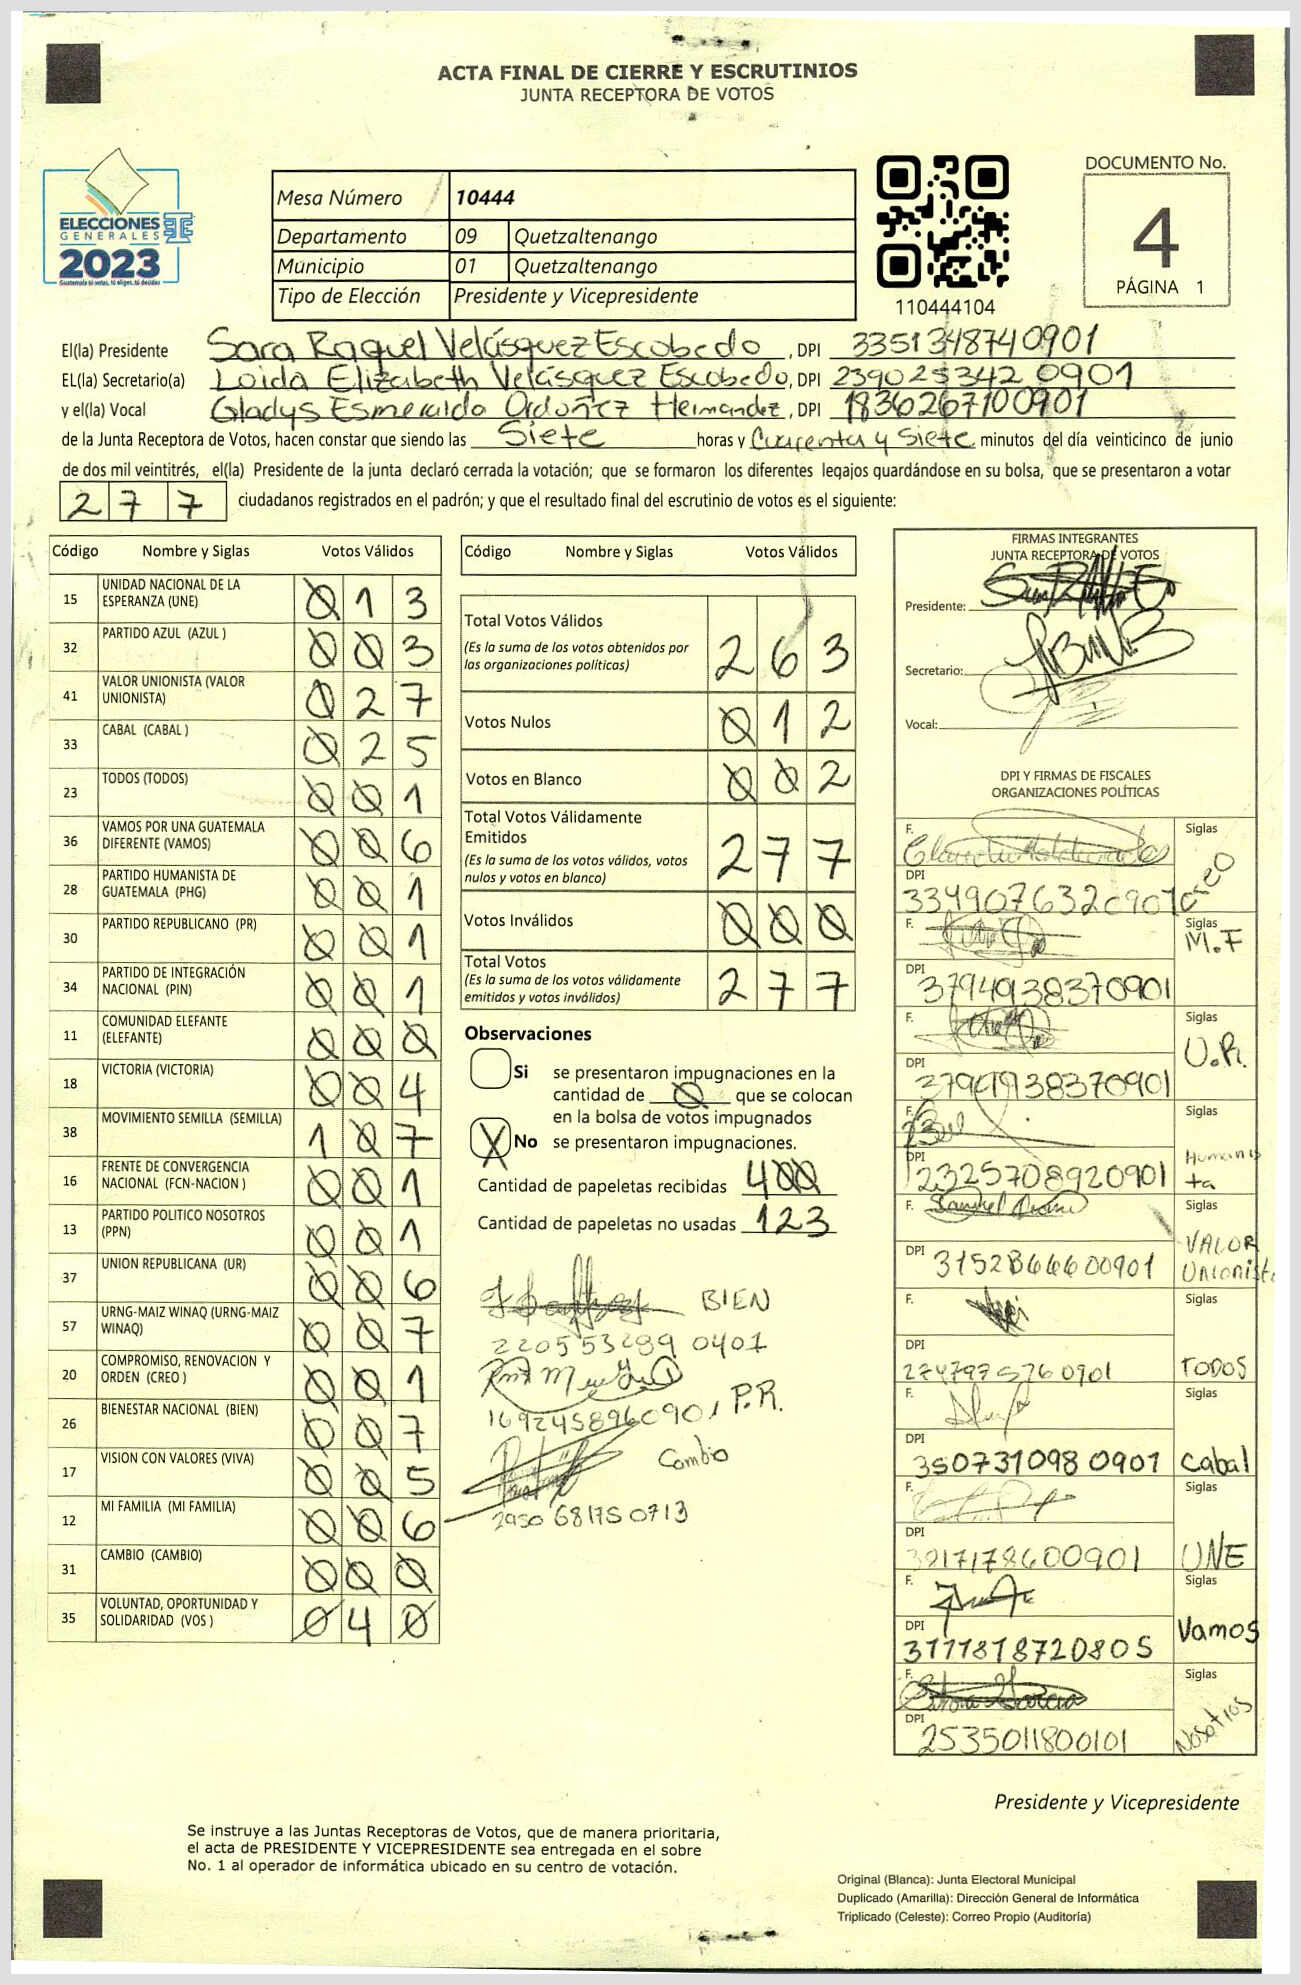 ACTA FINAL DE CIERRE Y ESCRUTINIOS
JUNTA RECEPTORA DE VOTOS
ELECCIONES
GENERALES
2023
Guatemala tú votas, tú eliges, tú decides
Mesa Número 10444
Departamento 09 Quetzaltenango
Municipio 01 Quetzaltenango
Tipo de Elección Presidente y Vicepresidente
110444104
DOCUMENTO No.
4
PÁGINA 1
El(la) Presidente Sara Raquel Velásquez Escobedo, DPI 3351348740901
EL(la) Secretario(a) Loida Elizabeth Velásquez Escobedo, DPI 239025342 0901
y el(la) Vocal Gladys Esmeralda Ordoñez Hernandez, DPI 1836267100901
de la Junta Receptora de Votos, hacen constar que siendo las Siete horas y Cuarenta y Siete minutos del día veinticinco de junio
de dos mil veintitrés, el(la) Presidente de la junta declaró cerrada la votación; que se formaron los diferentes legajos quardándose en su bolsa, que se presentaron a votar
277 ciudadanos registrados en el padrón; y que el resultado final del escrutinio de votos es el siguiente:
Código Nombre y Siglas Votos Válidos
15 UNIDAD NACIONAL DE LA ESPERANZA (UNE) 013
32 PARTIDO AZUL (AZUL ) 003
41 VALOR UNIONISTA (VALOR UNIONISTA) 027
33 CABAL (CABAL ) 025
23 TODOS (TODOS) 001
36 VAMOS POR UNA GUATEMALA DIFERENTE (VAMOS) 006
28 PARTIDO HUMANISTA DE GUATEMALA (PHG) 001
30 PARTIDO REPUBLICANO (PR) 001
34 PARTIDO DE INTEGRACIÓN NACIONAL (PIN) 001
11 COMUNIDAD ELEFANTE (ELEFANTE) 000
18 VICTORIA (VICTORIA) 004
38 MOVIMIENTO SEMILLA (SEMILLA) 107
16 FRENTE DE CONVERGENCIA NACIONAL (FCN-NACION ) 001
13 PARTIDO POLITICO NOSOTROS (PPN) 001
37 UNION REPUBLICANA (UR) 006
57 URNG-MAIZ WINAQ (URNG-MAIZ WINAQ) 007
20 COMPROMISO, RENOVACION Y ORDEN (CREO ) 001
26 BIENESTAR NACIONAL (BIEN) 007
17 VISION CON VALORES (VIVA) 005
12 MI FAMILIA (MI FAMILIA) 006
31 CAMBIO (CAMBIO) 000
35 VOLUNTAD, OPORTUNIDAD Y SOLIDARIDAD (VOS ) 040
Código Nombre y Siglas Votos Válidos
Total Votos Válidos 263
(Es la suma de los votos obtenidos por
las organizaciones políticas)
Votos Nulos 012
Votos en Blanco 002
Total Votos Válidamente
Emitidos 277
(Es la suma de los votos válidos, votos
nulos y votos en blanco)
Votos Inválidos 000
Total Votos 277
(Es la suma de los votos válidamente
emitidos y votos inválidos)
Observaciones
Si se presentaron impugnaciones en la
cantidad de 0 que se colocan
en la bolsa de votos impugnados
X No se presentaron impugnaciones.
Cantidad de papeletas recibidas 400
Cantidad de papeletas no usadas 123
BIEN
220553289 0401
P.R.
1692458960901
Cambio
2950 68175 0713
FIRMAS INTEGRANTES
JUNTA RECEPTORA DE VOTOS
Presidente:
Secretario:
Vocal:
DPI Y FIRMAS DE FISCALES
ORGANIZACIONES POLÍTICAS
F. Siglas
DPI 3349076320901 Creo
F. Siglas M.F
DPI 3794938370901
F. Siglas U.R.
DPI 3794938370901
F. Siglas
DPI 2325708920901 Humanista
F. Siglas
DPI 3152866600901 VALOR Unionista
F. Siglas
DPI 2747975760901 TODOS
F. Siglas
DPI 350731098 0901 Cabal
F. Siglas
DPI 3217178600901 UNE
F. Siglas
DPI 3111818720805 Vamos
F. Siglas
DPI 2535011800101 Nosotros
Presidente y Vicepresidente
Se instruye a las Juntas Receptoras de Votos, que de manera prioritaria,
el acta de PRESIDENTE Y VICEPRESIDENTE sea entregada en el sobre
No. 1 al operador de informática ubicado en su centro de votación.
Original (Blanca): Junta Electoral Municipal
Duplicado (Amarilla): Dirección General de Informática
Triplicado (Celeste): Correo Propio (Auditoría)